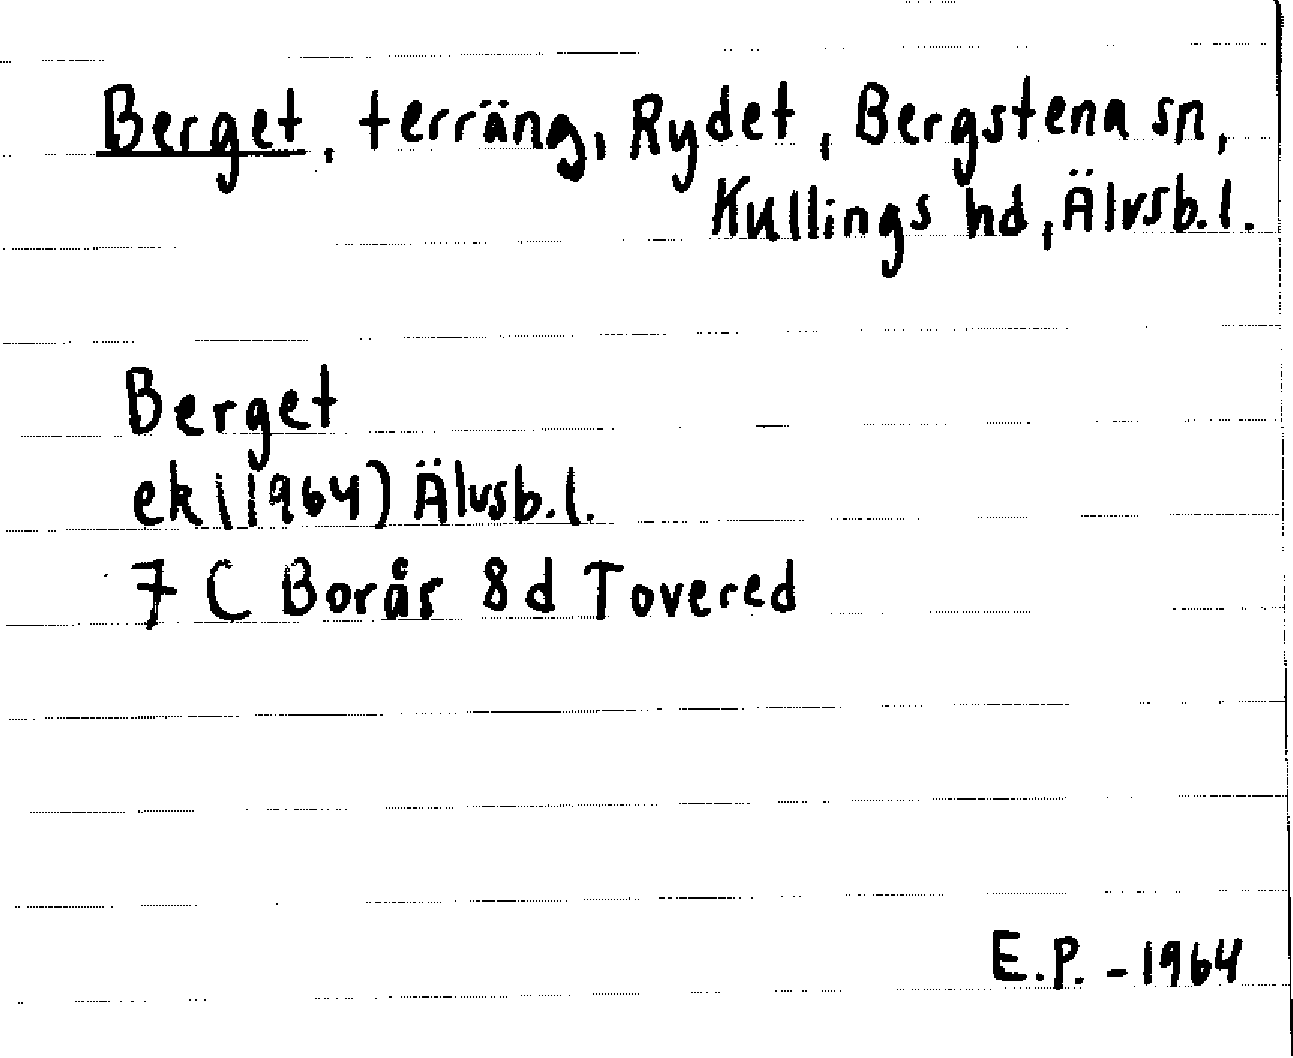 Berget, terräng, Rydet, Bergstena sn,
Kullings hd, Älvsb.l.
Berget
ek (1964) Älvsb.l.
7 C Borås 8 d Tovered
E.P. - 1964